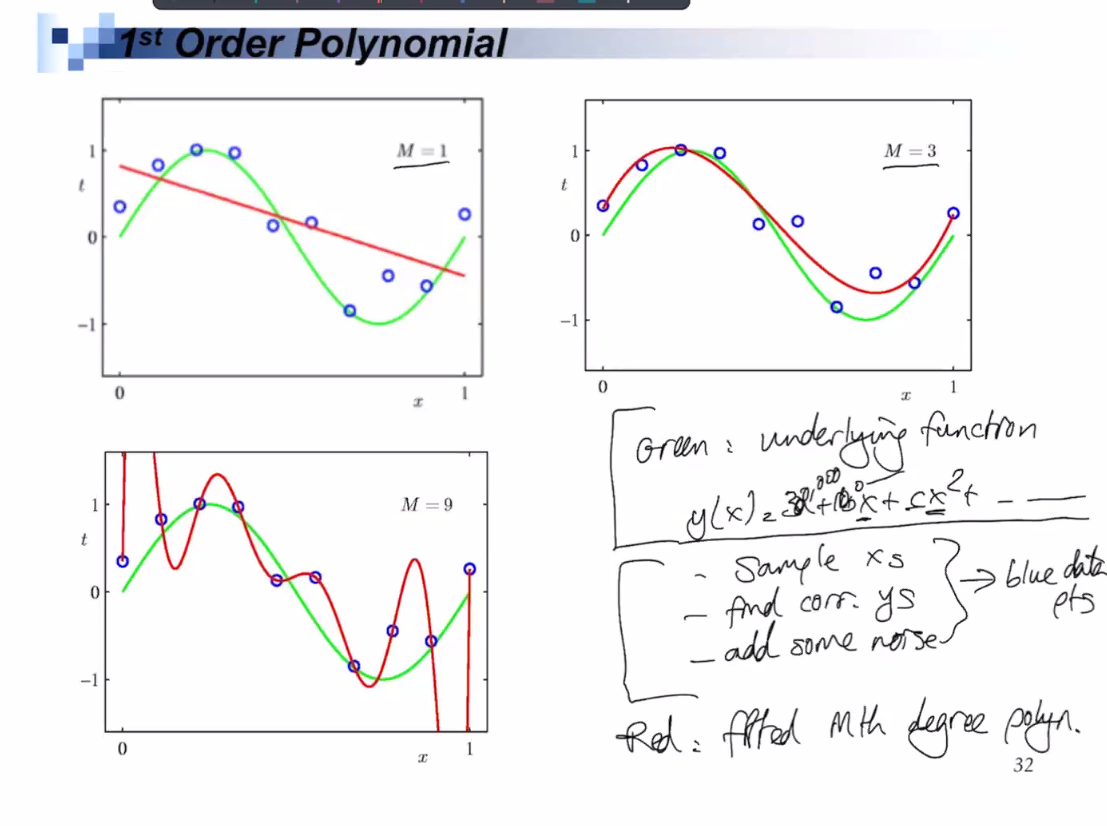 1st Order Polynomial
M = 1
1
t
0
−1
0
x
1
M = 3
1
t
0
−1
0
x
1
M = 9
1
t
0
−1
0
x
1
Green : underlying function
y(x) = x + cx² + - —
- Sample xs
- find corr. ys
- add some noise
→ blue data
pts
Red : fitted Mth degree polyn.
32